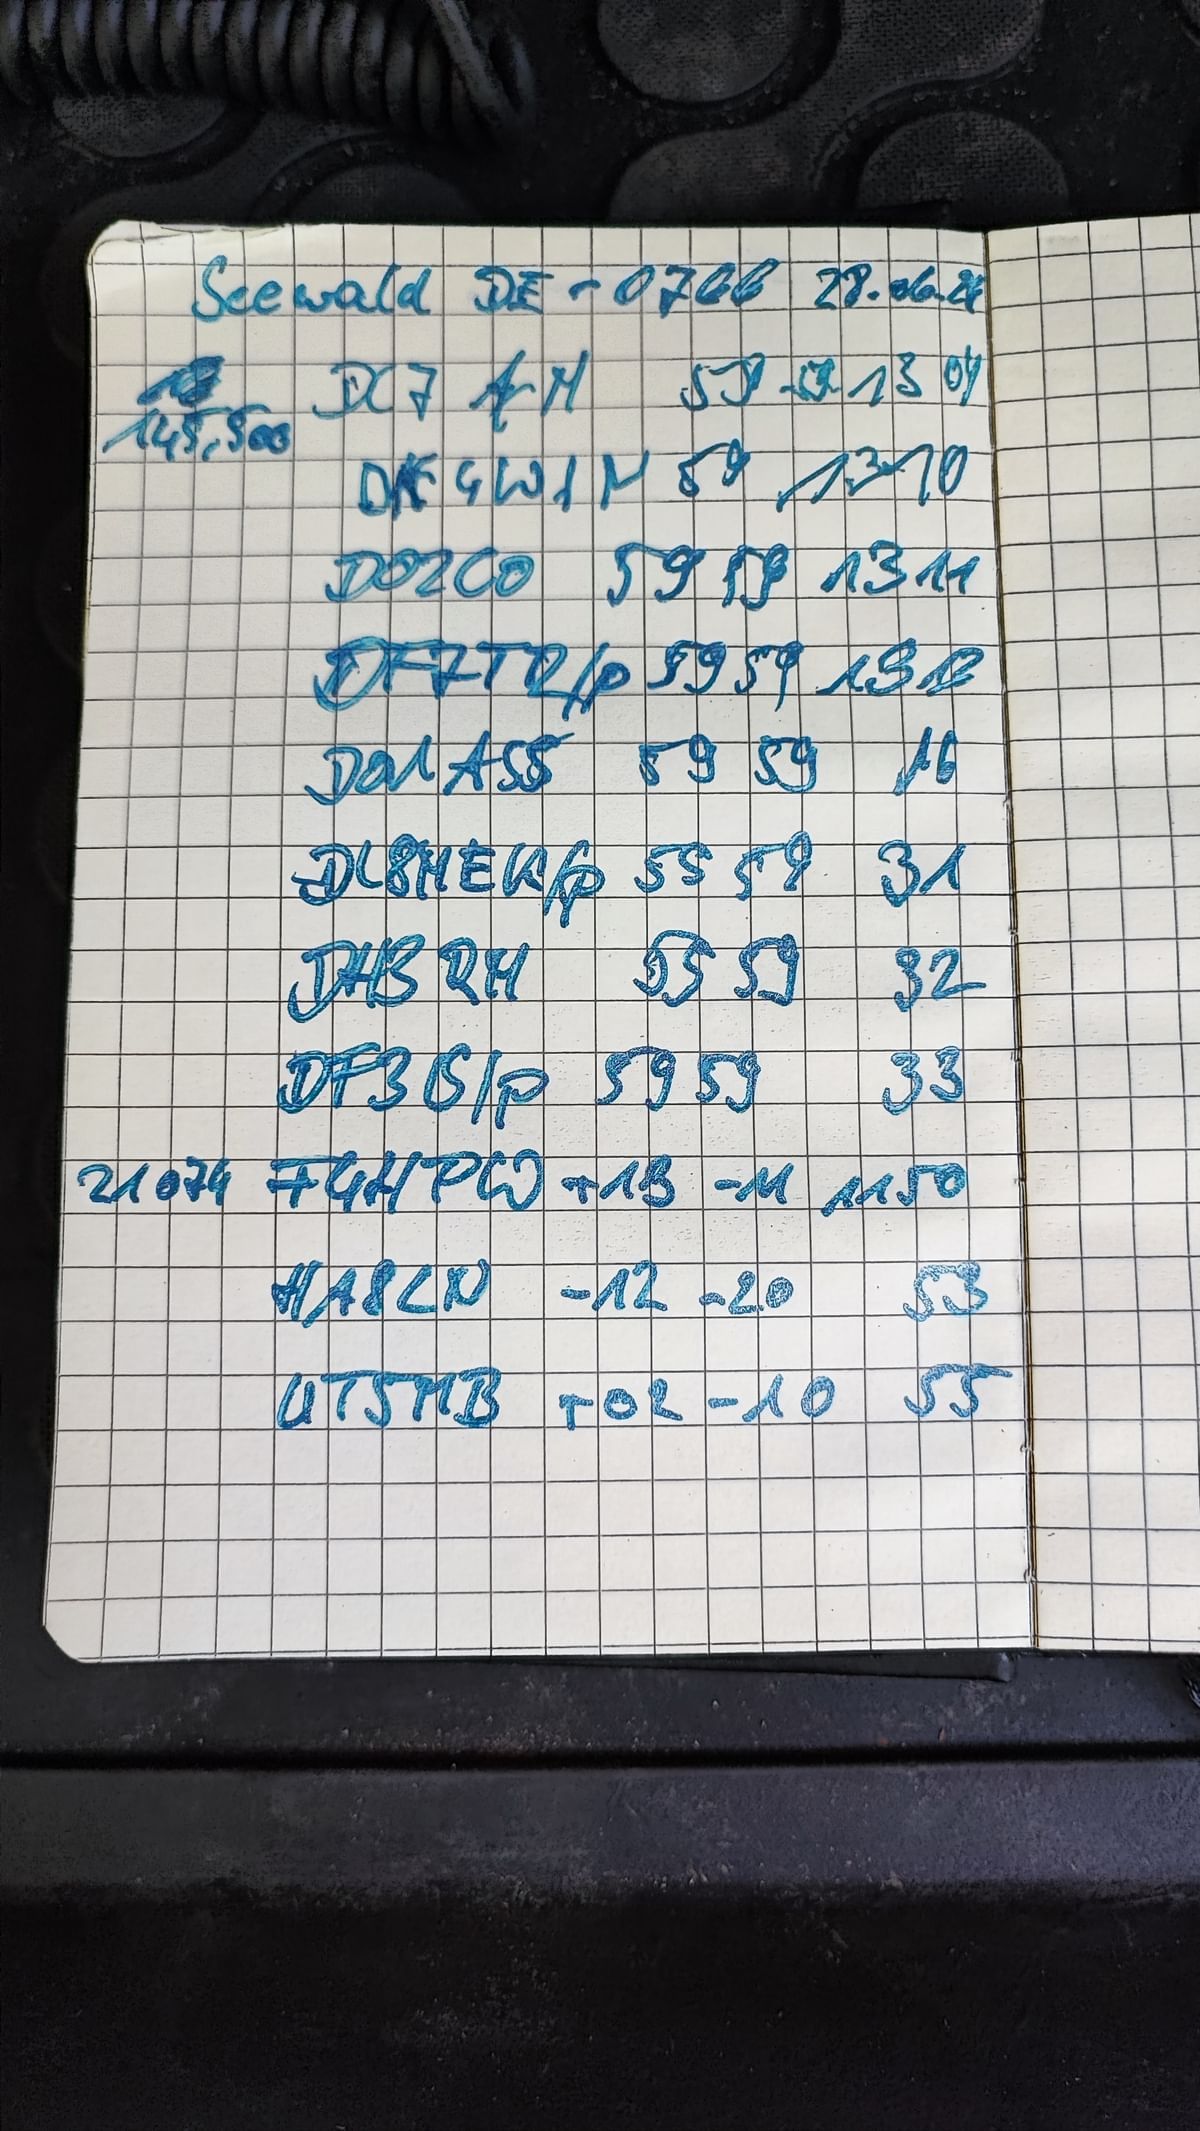 Seewald DE-0766 28.06.24
DC7 AM 59 59 13 04
145,500
DK4WIN 59 1310
DO2CO 59 59 1311
DF7TR/p 59 59 1312
DO1ASS 59 59 16
DL8MEK/p 55 59 31
DH3RM 55 59 32
DF3IS/p 59 59 33
21074 F4HPW +13 -11 1150
HA8LN -12 -20 53
UT5MB +02 -10 55